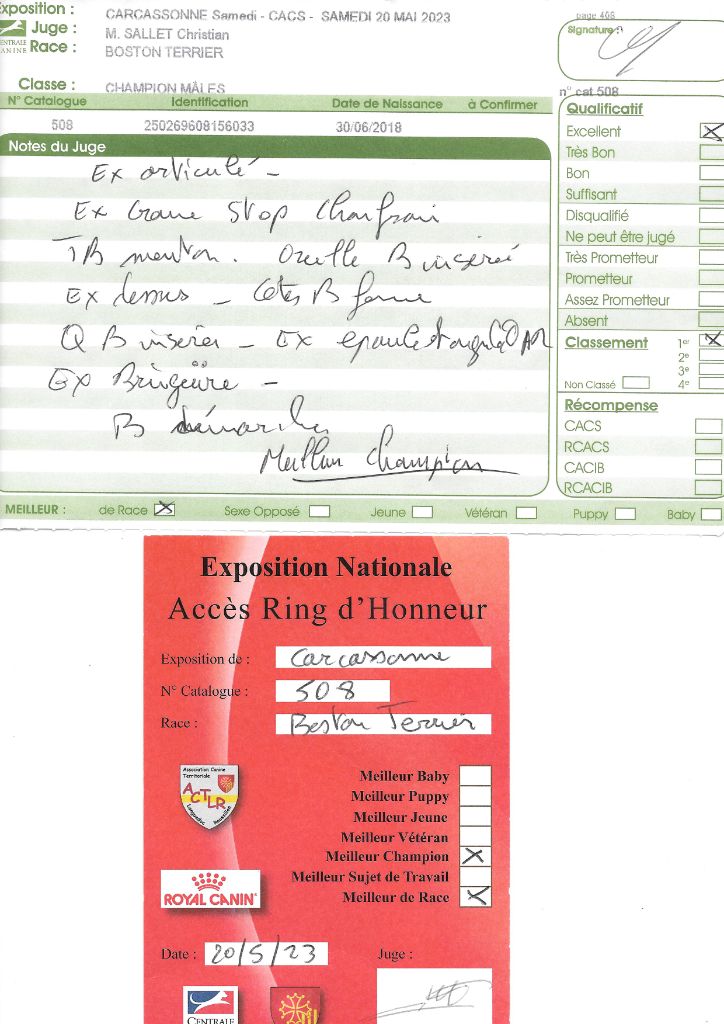 Exposition : CARCASSONNE Samedi - CACS - SAMEDI 20 MAI 2023
page 408
Juge : M. SALLET Christian
Signature :
CENTRALE CANINE
Race : BOSTON TERRIER
Classe : CHAMPION MÂLES
n° cat 508
N° Catalogue Identification Date de Naissance à Confirmer
508 250269608156033 30/06/2018
Notes du Juge
Ex articulé -
Ex Crane Stop Chanfrein
TB menton. Oreille B insérée
Ex dessus - Cotes B forme
Q B insérée - Ex epaule et angul AR
Ex Bringeüre -
B démarche
Meilleur Champion
Qualificatif
Excellent X
Très Bon
Bon
Suffisant
Disqualifié
Ne peut être jugé
Très Prometteur
Prometteur
Assez Prometteur
Absent
Classement 1er X
2e
3e
Non Classé 4e
Récompense
CACS
RCACS
CACIB
RCACIB
MEILLEUR : de Race X Sexe Opposé Jeune Vétéran Puppy Baby
Exposition Nationale
Accès Ring d'Honneur
Exposition de : Carcassonne
N° Catalogue : 508
Race : Boston Terrier
Association Canine
Territoriale
ACTLR
Languedoc Roussillon
Meilleur Baby
Meilleur Puppy
Meilleur Jeune
Meilleur Vétéran
Meilleur Champion X
Meilleur Sujet de Travail
Meilleur de Race X
ROYAL CANIN
Date : 20/5/23 Juge :
CENTRALE